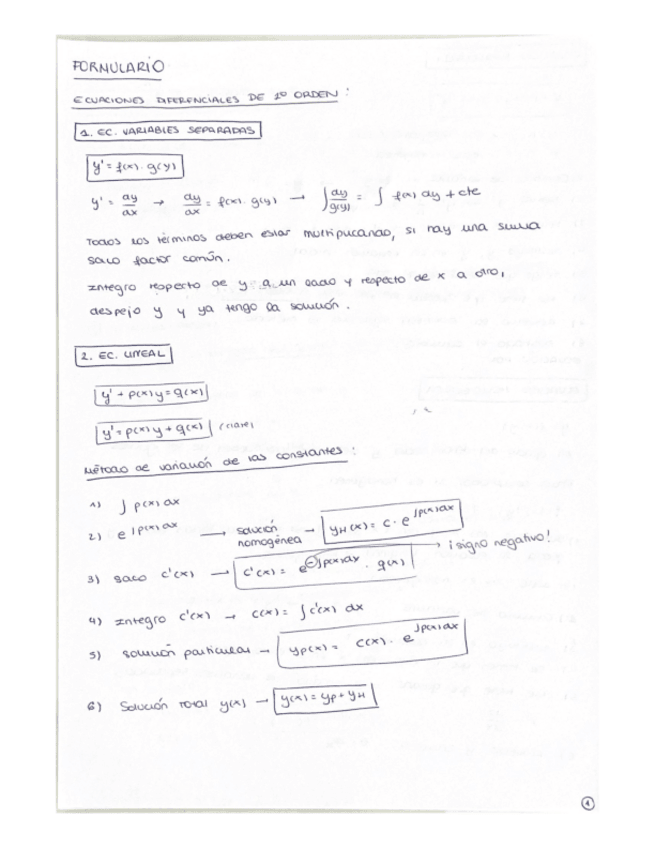 FORMULARIO
ECUACIONES DIFERENCIALES DE 1º ORDEN :
1. EC. VARIABLES SEPARADAS
y' = f(x) · g(y)
y' = dy/dx → dy/dx = f(x) · g(y) → ∫ dy/g(y) = ∫ f(x) dy + cte
Todos los términos deben estar multiplicando, si hay una suma
saco factor común.
Integro respecto de y a un lado y respecto de x a otro,
despejo y y ya tengo la solución.
2. EC. LINEAL
y' + p(x) y = q(x)
y' = p(x) y + q(x)
Método de variación de las constantes :
1) ∫ p(x) dx
2) e^∫p(x) dx → solución homogénea → yH(x) = C · e^∫p(x) dx
3) saco c'(x) → c'(x) = e^-∫p(x) dx · q(x) → ¡signo negativo!
4) Integro c'(x) → c(x) = ∫ c'(x) dx
5) solución particular → yp(x) = c(x) · e^∫p(x) dx
6) Solución total y(x) → y(x) = yp + yH
1